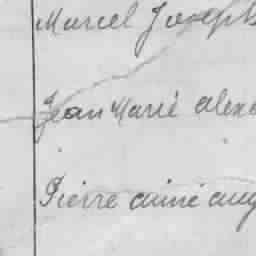 Marcel Joseph
Jean Marie alex
Pierre aimé aug